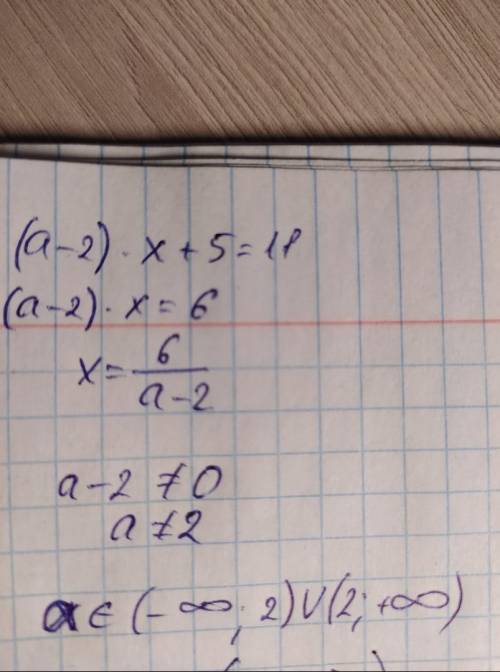 (a-2) · x + 5 = 11
(a-2) · x = 6
x = 6/(a-2)
a-2 ≠ 0
a ≠ 2
a ∈ (-∞; 2) ∪ (2; +∞)